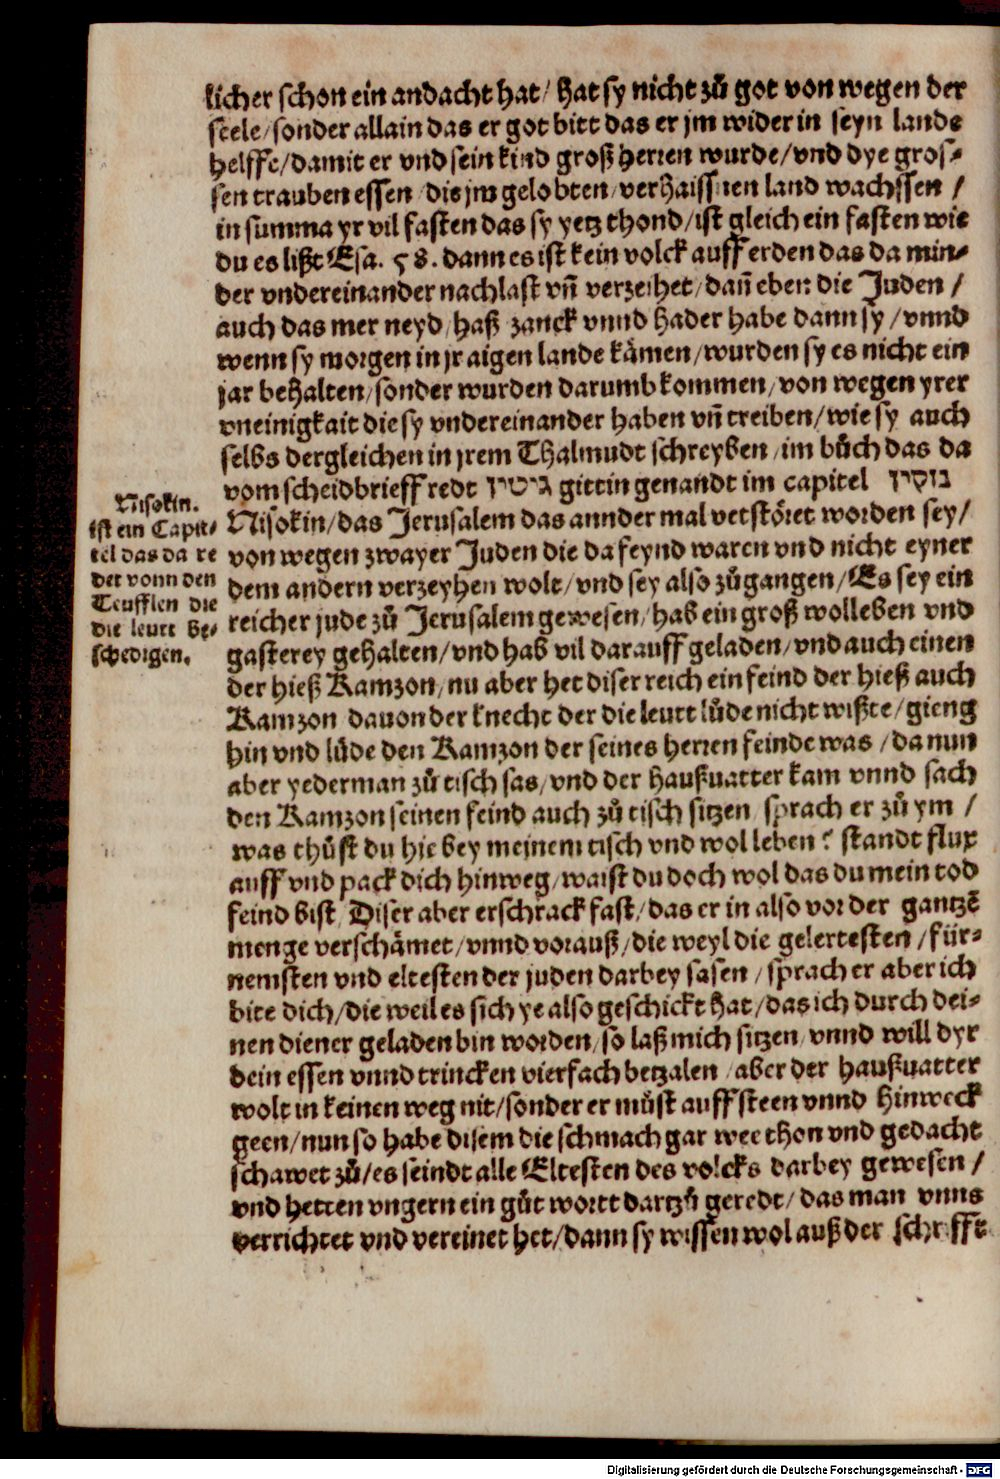 licher schon ein andacht hat / hat sy nicht zů got von wegen der
seele / sonder allain das er got bitt das er jm wider in seyn lande
helffe / damit er vnd sein kind groß herren wurde / vnd dye gros⸗
sen trauben essen / die jm gelobten / verhaissnen land wachssen /
in summa yr vil fasten das sy yetz thond / ist gleich ein fasten wie
du es lißt Esa. 58. dann es ist kein volck auff erden das da min⸗
der vndereinander nachlast vñ verzeihet / dañ eben die Juden /
auch das mer neyd / haß zanck vnnd hader habe dann sy / vnnd
wenn sy morgen in jr aigen lande kämen / wurden sy es nicht ein
jar behalten / sonder wurden darumb kommen / von wegen yrer
vneinigkait die sy vndereinander haben vñ treiben / wie sy auch
selbs dergleichen in jrem Thalmudt schreyben / im bůch das da
vom scheidbrieff redt גיטין gittin genandt im capitel נזקין
Nisokin / das Jerusalem das annder mal verstöret worden sey /
von wegen zwayer Juden die da feynd waren vnd nicht eyner
dem andern verzeyhen wolt / vnd sey also zůgangen / Es sey ein
reicher jude zů Jerusalem gewesen / hab ein groß wolleben vnd
gasterey gehalten / vnd hab vil darauff geladen / vnd auch einen
der hieß Kamzon / nu aber het diser reich ein feind der hieß auch
Kamzon dauon der knecht der die leutt lůde nicht wißte / gieng
hin vnd lůde den Kamzon der seines herren feinde was / da nun
aber yederman zů tisch sas / vnd der haußuatter kam vnnd sach
den Kamzon seinen feind auch zů tisch sitzen / sprach er zů ym /
was thůst du hie bey meinem tisch vnd wolleben? standt flux
auff vnd pack dich hinweg / waist du doch wol das du mein tod
feind bist / Diser aber erschrack fast / das er in also vor der gantzẽ
menge verschämet / vnnd vorauß / die weyl die gelertesten / für⸗
nemsten vnd eltesten der juden darbey sasen / sprach er aber ich
bite dich / die weil es sich ye also geschickt hat / das ich durch dei⸗
nen diener geladen bin worden / so laß mich sitzen / vnnd will dyr
dein essen vnnd trincken vierfach betzalen / aber der haußuatter
wolt in keinen weg nit / sonder er můst auffsteen vnnd hinweck
geen / nun so habe disem die schmach gar wee thon vnd gedacht
schawet zů / es seindt alle Eltesten des volcks darbey gewesen /
vnd hetten vngern ein gůt wortt dartzů geredt / das man vnns
verrichtet vnd vereinet het / dann sy wissen wol auß der schrifft
Nisokin.
ist ein Capit⸗
tel das da re
det vonn den
Teufflen die
die leutt be⸗
schedigen.
Digitalisierung gefördert durch die Deutsche Forschungsgemeinschaft - DFG